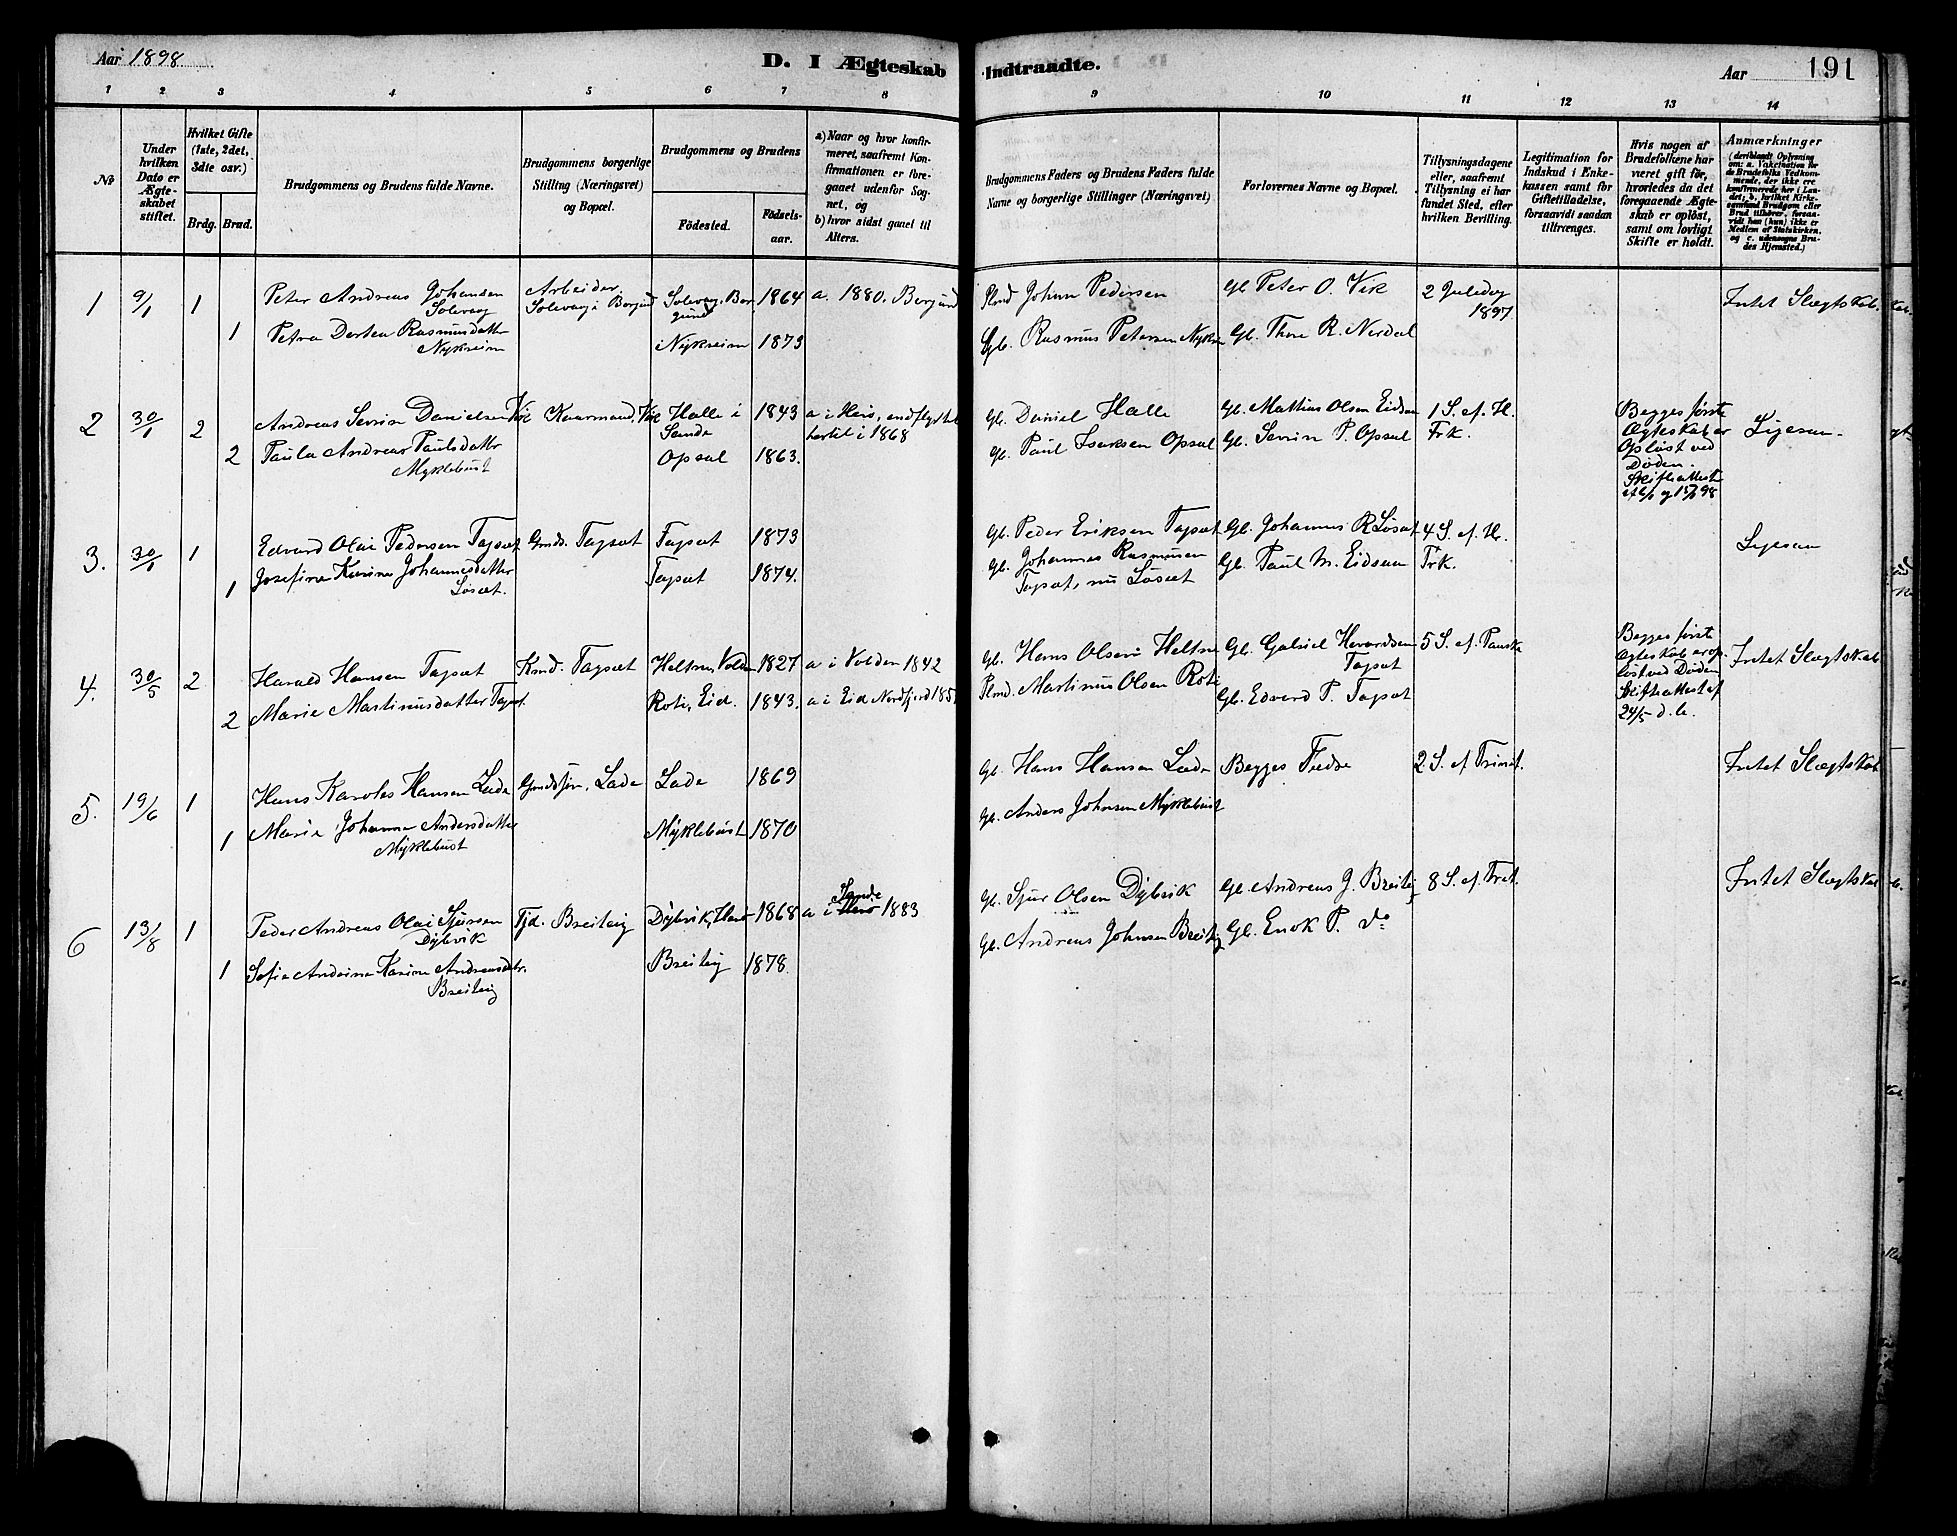 Aar 1898
D. I Ægteskab Indtraadte.
Aar 191
1 2 3 4 5 6 7 8 9 10 11 12 13 14
№
Under hvilken Dato er Ægteskabet stiftet.
Hvilket Gifte (1ste, 2det, 3die osv.)
Brdg. Brud.
Brudgommens og Brudens fulde Navne.
Brudgommens borgerlige Stilling (Næringsvei) og Bopæl.
Brudgommens og Brudens
Födested.
Födselsaar.
a) Naar og hvor konfirmeret, saafremt Konfirmationen er foregaaet udenfor Sognet, og
b) hvor sidst gaaet til Alters.
Brudgommens Faders og Brudens Faders fulde Navne og borgerlige Stillinger (Næringsvei)
Forlovernes Navne og Bopæl.
Tillysningsdagene eller, saafremt Tillysning ei har fundet Sted, efter hvilken Bevilling.
Legitimation for Indskud i Enkekassen samt for Giftetilladelse, forsaavidt saadan tiltrænges.
Hvis nogen af Brudefolkene har været gift för, hvorledes da det foregaaende Ægteskab er oplöst, samt om lovligt Skifte er holdt.
Anmærkninger
(deriblandt Oplysning om: a. Vakcination for de Brudefolks Vedkommende, der ikke ere konfirmerede her i Landet; b. hvilket Kirkesamfund Brudgom eller Brud tilhörer, forsaavidt han (hun) ikke er Medlem af Statskirken, og c. udensogns Brudes Hjemsted.)
1 9/1 1 Peter Andreas Johansen Solevaag Arbeider. Solevaag i Borgund Solevag, Borgund 1864 a. 1880. Borgund Plmd Johan Pedersen Gl Peter O. Vik 2 Juledag 1897 Intet Slægtskab.
1 Petra Dortea Rasmusdatter Nykreim Nykreim 1873 Gb. Rasmus Petersen Nykrei Gb. Thore R. Nerdal
2 30/1 2 Andreas Severin Danielsen Vik Kaarmand, Vik Halle i Sande 1843 a i Herø, indflyttet hertil i 1868 Gb. Daniel Halle Gb. Mattias Olsen Eidsaa 1 S. ef. H. Frk. Begges første Ægteskab er Opløst ved Døden. Skifteattester af 6/1 og 15/1 98 Ligesaa.
2 Paula Andrea Paulsdatter Myklebust Opsal 1863. Gb. Paul Isaksen Opsal Gb. Severin P. Opsal
3. 30/1 1 Edvard Olai Pedersen Tapsæt Gmds. Tapsæt Tapsæt 1873 Gb. Peder Eriksen Tapsæt Gb. Johannes R Løset 4 S. ef. H. Frk. Ligesaa
1 Josefine Karine Johannesdatter Løset. Tapsæt 1874. Gb. Johannes Rasmusen Tapsæt, nu Løset Gb. Paul M. Eidsaa
4. 30/5 2 Harald Hansen Tapsæt Kmd. Tapsæt Heltne, Volden 1827 a i Volden 1842 Gb. Hans Olsen Heltne Gb. Gabriel Hevardsen Tapsæt 5 S. ef. Paaske Begges første Ægteskab er opløst ved Døden Skifteattest af 24/5 d. A. Intet Slægtskab
2 Marie Martinusdatter Tapsæt. Roti, Eid. 1843. a i Eid Nordfjord 185 Plmd. Martinus Olsen Roti Gb. Edvard P. Tapsæt
5. 19/6 1 Hans Karoles Hansen Lade Gmdssøn, Lade Lade 1869 Gb. Hans Hansen Lade Begges Fædre 2 S. ef Trinit. Intet Slægtskab
1 Marie Johanna Andersdatter Myklebust Myklebust 1870 Gb. Anders Johnsen Myklebust
6 13/8 1 Peder Andreas Olai Sjursen Dybvik Tjd. Breiteig Dybvik, Herø 1868 a i Sande Herø 1883 Gb. Sjur Olsen Dybvik Gb. Andreas J. Breiteig 8 S. ef. Tret. Intet Slægtskab
1 Sofie Andrine Karine Andreasdtr. Breiteig Breiteig 1878. Gb. Andreas Johnsen Breiteig Gb. Enok P. do